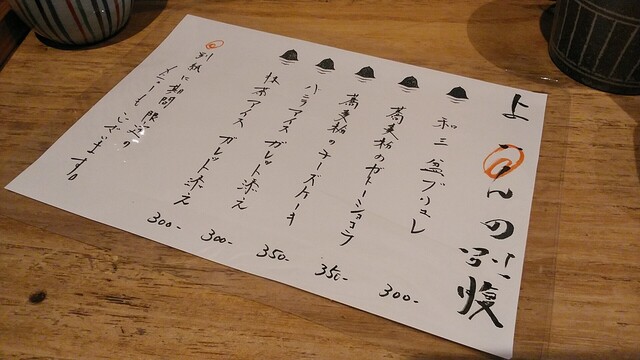 の別腹
和三盆ブリュレ 300-
蕎麦粉のガトーショコラ 350-
蕎麦粉のチーズケーキ 350-
バニラアイス ガレット添え 300-
抹茶アイス ガレット添え 300-
別紙に期間限定の
メニューもございます。